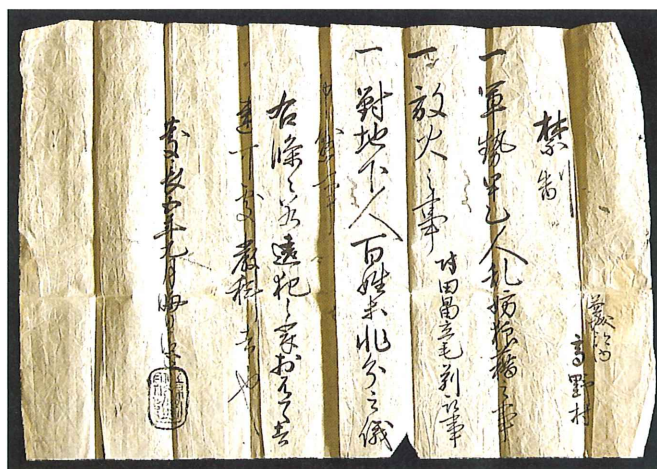 禁制
高野村
一軍勢甲乙人乱妨狼藉之事
一放火之事 付田畠立毛刈取事
一対地下人百姓非分之儀
右條々若違犯之於有之者
可處厳科者也
慶長五年九月